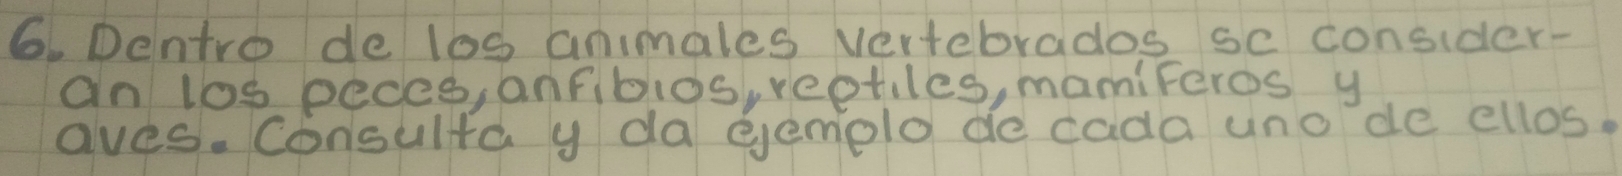 6. Dentro de los animales vertebrados se consider-
an los peces, anfibios, reptiles, mamíferos y
aves. Consulta y da ejemplo de cada uno de ellos.